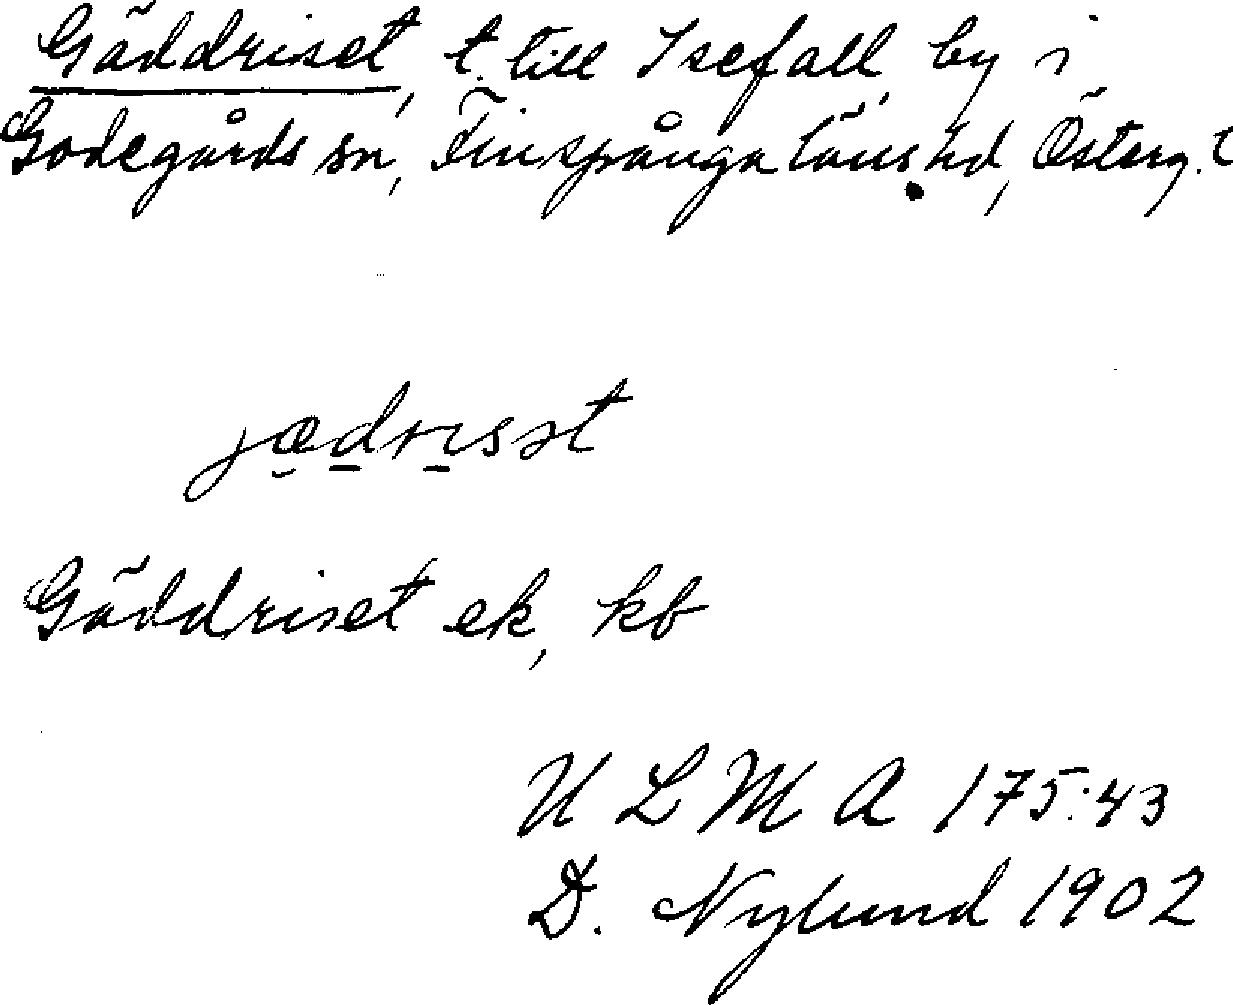 Gäddriset, t. till Isefall, by i
Godegårds sn, Finspånga läns hd, Österg. l
Gäddriset ek, kb
U L M A 175:43
D. Nylund 1902